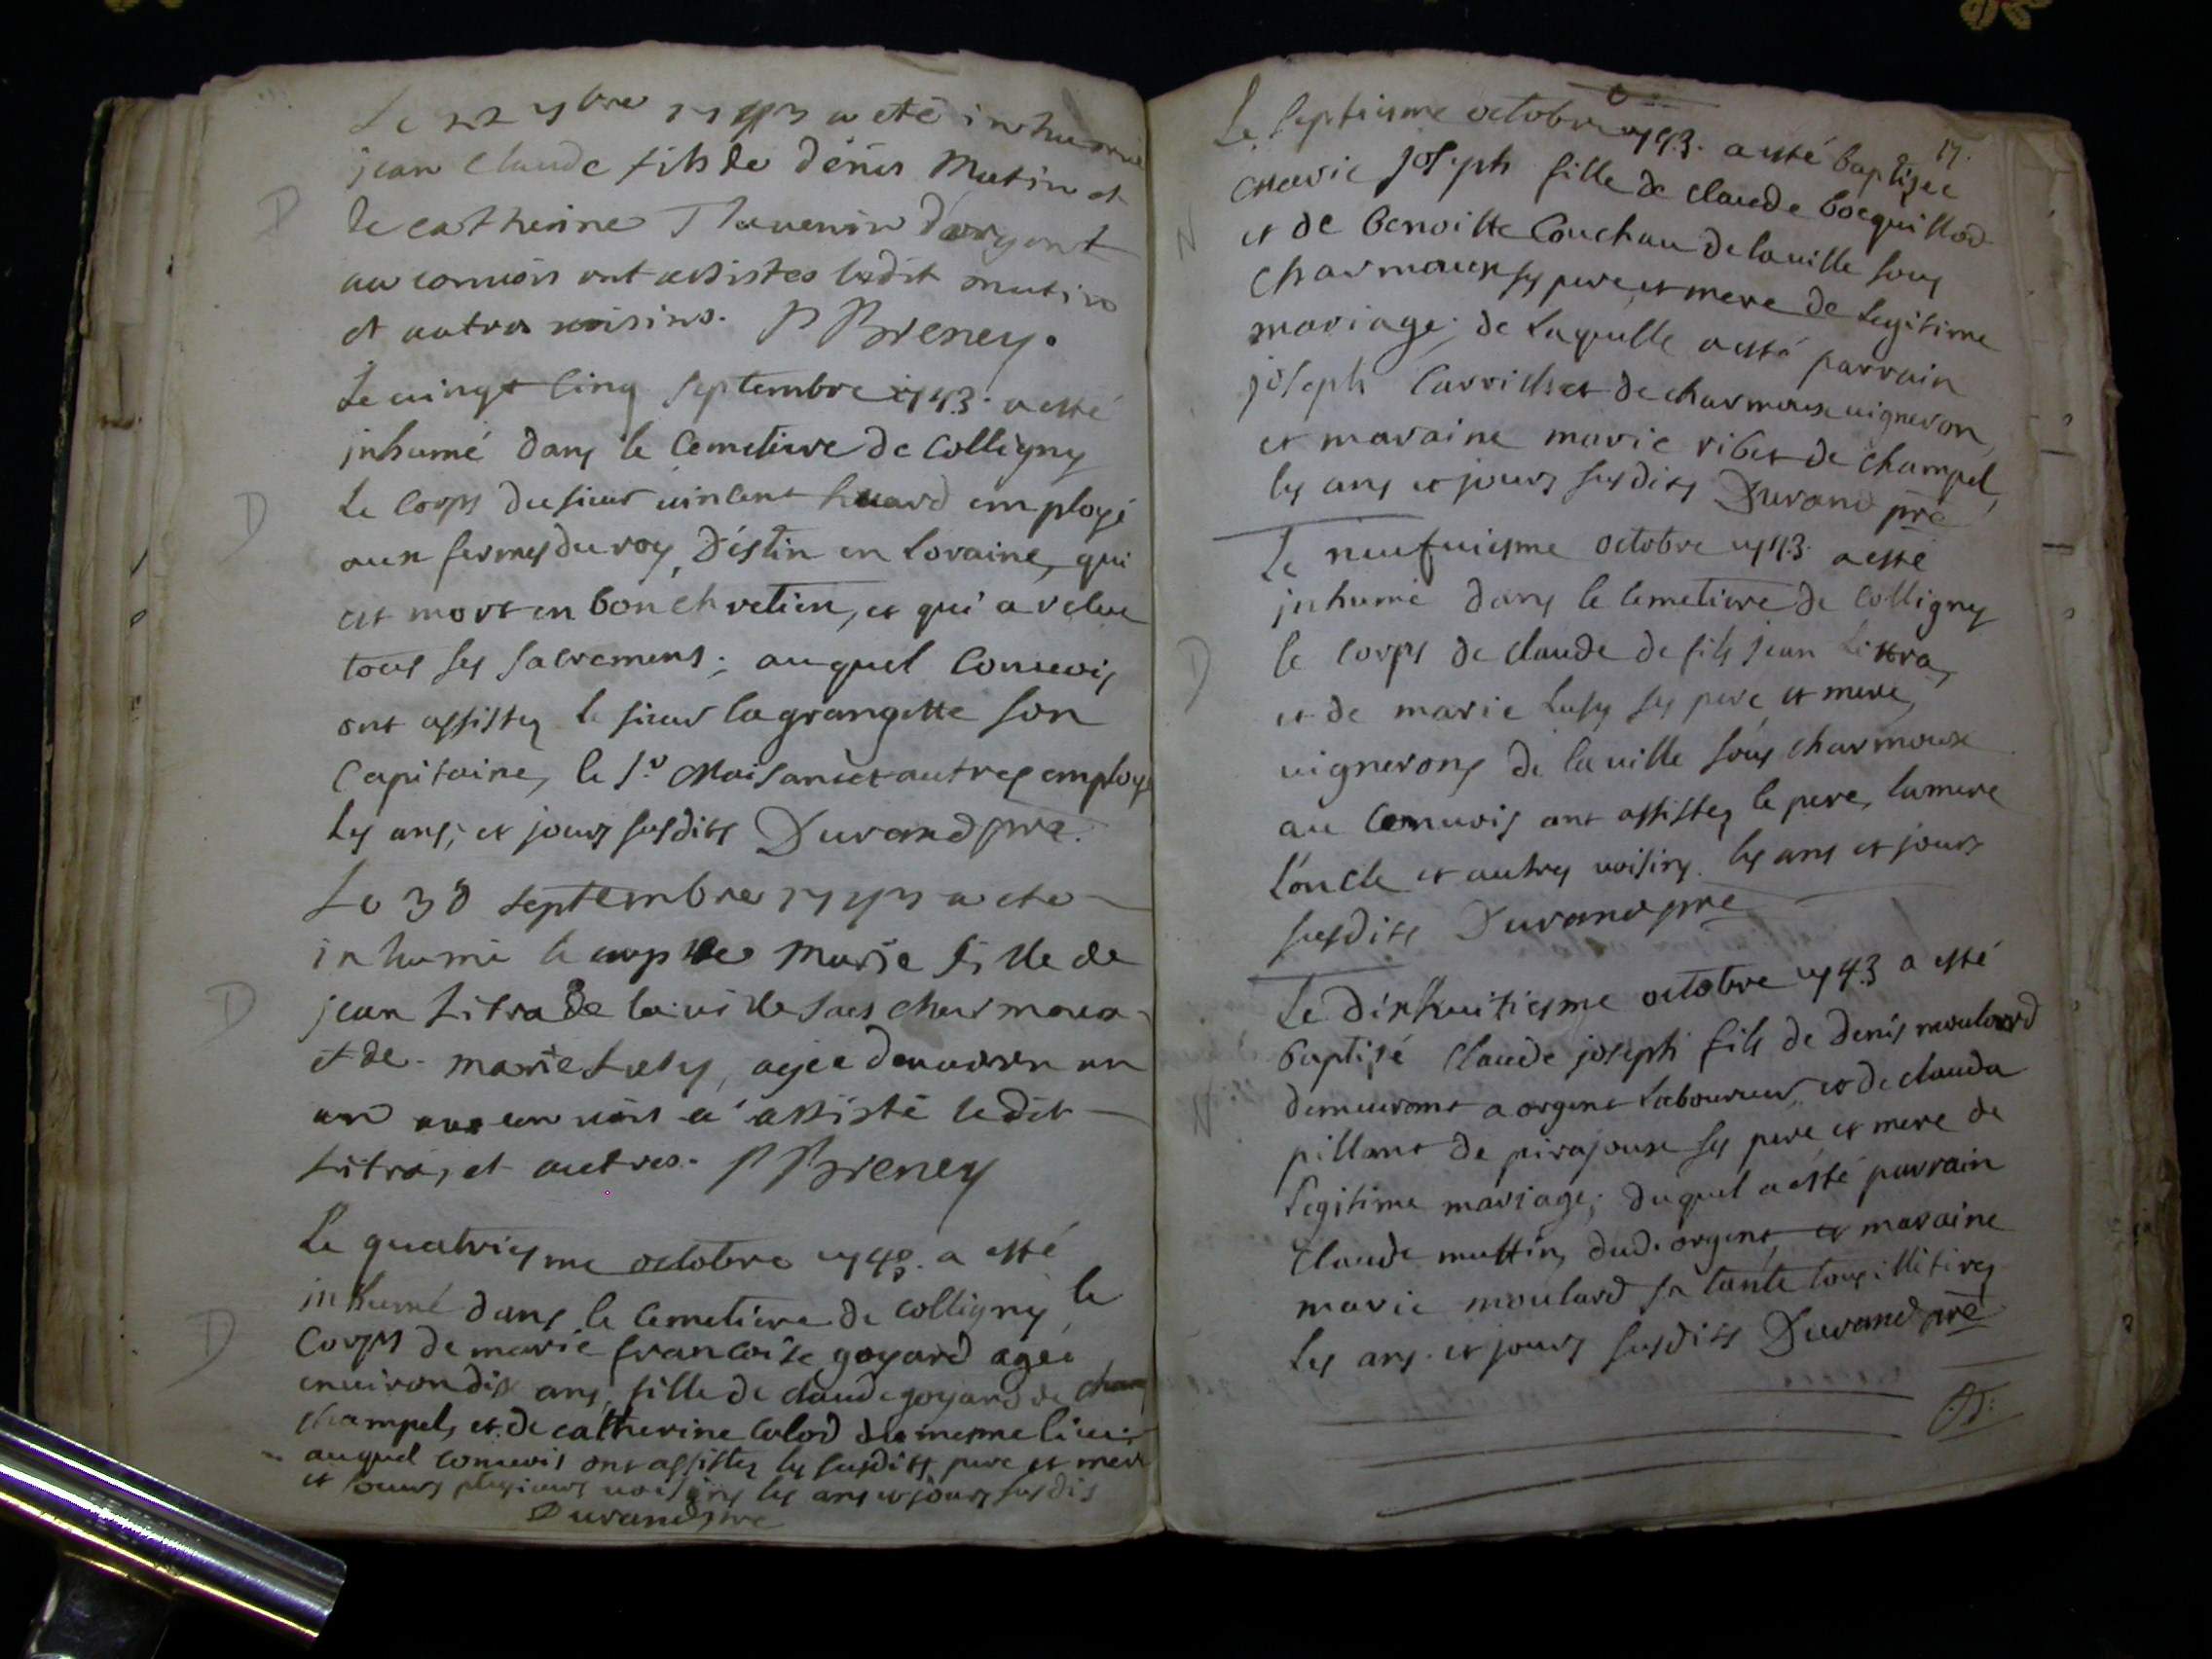 Le 22 7bre 1743 a eté inhumé
jean Claude fils de dénis Mutin et
de catherine Thauenin dorgent
au conuois ont assistes ledit mutin
et autres uoisins. P Breney.
Le uingt cinq septembre 1743. a esté
inhumé dans le Cemetierre de Colligny
Le Corps du sieur uincent huard employé
aux fermes du roy, D'éstin en Loraine, qui
est mort en bon chretien, et qui a reçue
tous ses sacremens; auquel Conuois
ont assistez le sieur lagrangette son
Capitaine, le Sr Moisaniet autres employe
Les ans, et jours susdits Durand pre.
Le 30 septembre 1743 a eté
inhumé le corps de Marie fille de
jean Litra de la uille sous charmoux
et de marie Lusy, agée denuiron un
an au conuois a assisté ledit
Litra, et autres. P Breney
Le quatriesme octobre 1743. a esté
inhumé dans le Cemetiere de Colligny le
Corps de marie francoise goyard agée
enuiron dix ans, fille de claude goyard de
champel, et de catherine Colod du mesme lieu;
auquel conuois ont assistez les susdits pere et mere
et plusieurs uoisins les ans et jours susdis
Durand pre
17.
Le septiesme octobre 1743. a esté baptisee
Marie joseph fille de claude bocquillod
et de Benoitte Couchau de la uille sous
Charmoux ses pere et mere de Legitime
mariage; de Laquelle a esté parrain
joseph Carrichet de charmoux uigneron
et maraine marie ribet de champel,
les ans et jours susdits Durand pre
Le neufuiesme octobre 1743. a esté
inhumé dans le Cemetierre de Colligny
le Corps de claude de fils jean Littra,
et de marie Lusy ses pere et mere,
uignerons de la uille sous charmoux
au Conuois ont assistez le pere, la mere
L'oncle et autres uoisins. les ans et jours
susdits Durand pre
Le dixhuitiesme octobre 1743 a esté
baptisé Claude joseph fils de denis moulard
demeurant a orgent Laboureur, et de clauda
pillant de pirajoux ses pere et mere de
Legitime mariage; duquel a esté parrain
Claude muttin, dud. orgent, et maraine
marie moulard sa tante tous illitirez
Les ans. et jours susdits Durand pre